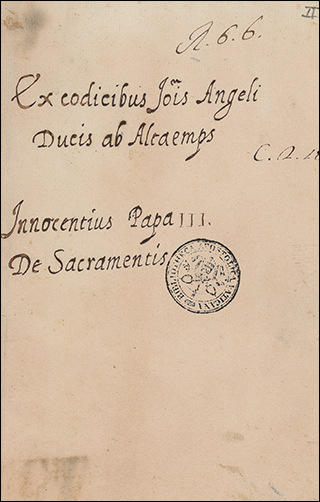 II
A. 6. 6.
Ex codicibus Jois Angeli
Ducis ab Altaemps
C. 2.
Innocentius Papa III.
De Sacramentis
BIBLIOTHECA APOSTOLICA VATICANA